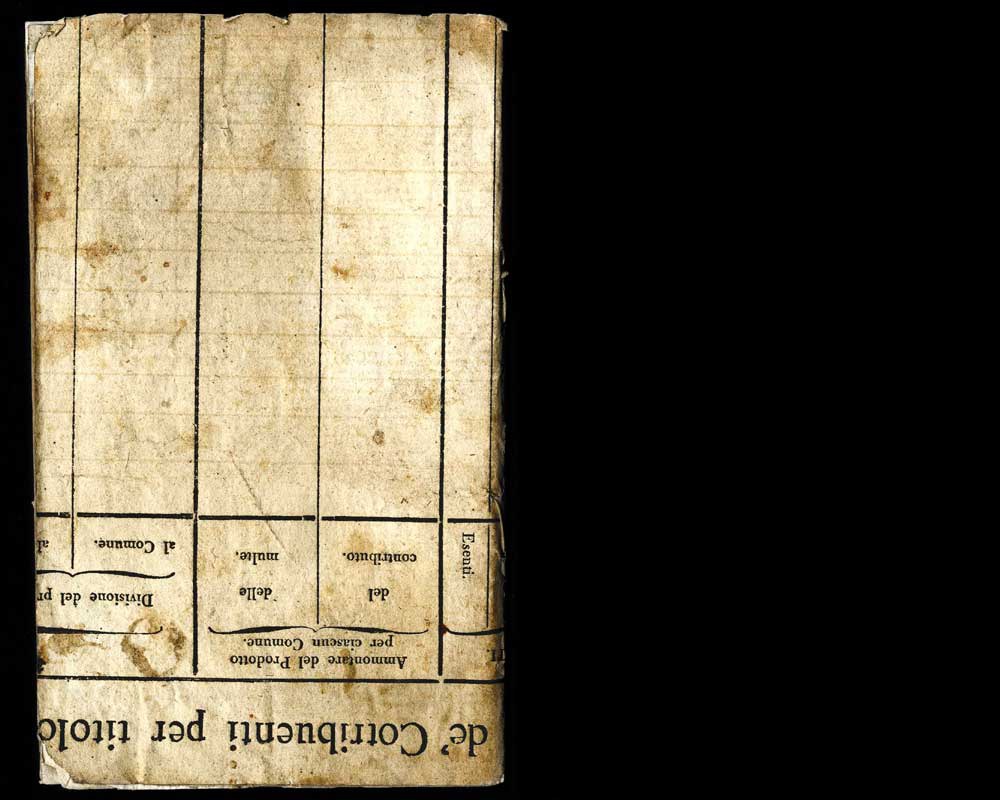 de' Cotribuenti per titolo
TI.
Ammontare del Prodotto
per ciascun Comune.
Divisione del pr
del
delle
Esenti.
contributo.
multe.
al Comune.
al